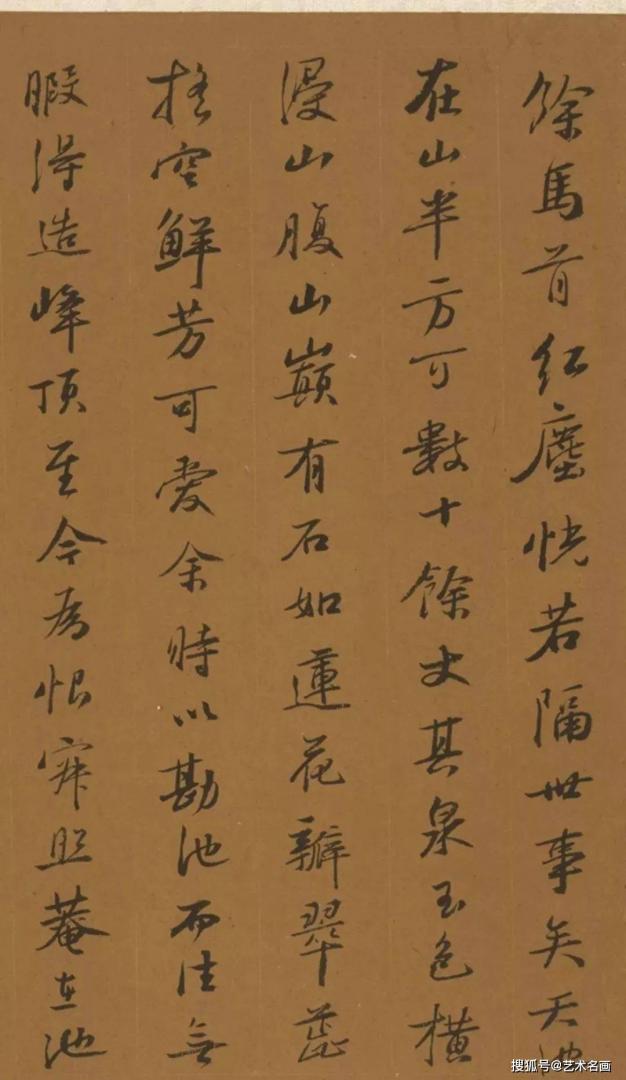 餘馬首紅塵恍若隔世事矣天池
在山半方可數十餘丈其泉玉色橫
浸山腹山巔有石如蓮花瓣翠蕊
搖空鮮芳可愛余時以勘池而往無
暇得造峰頂至今為恨寂照菴在池
搜狐号@艺术名画